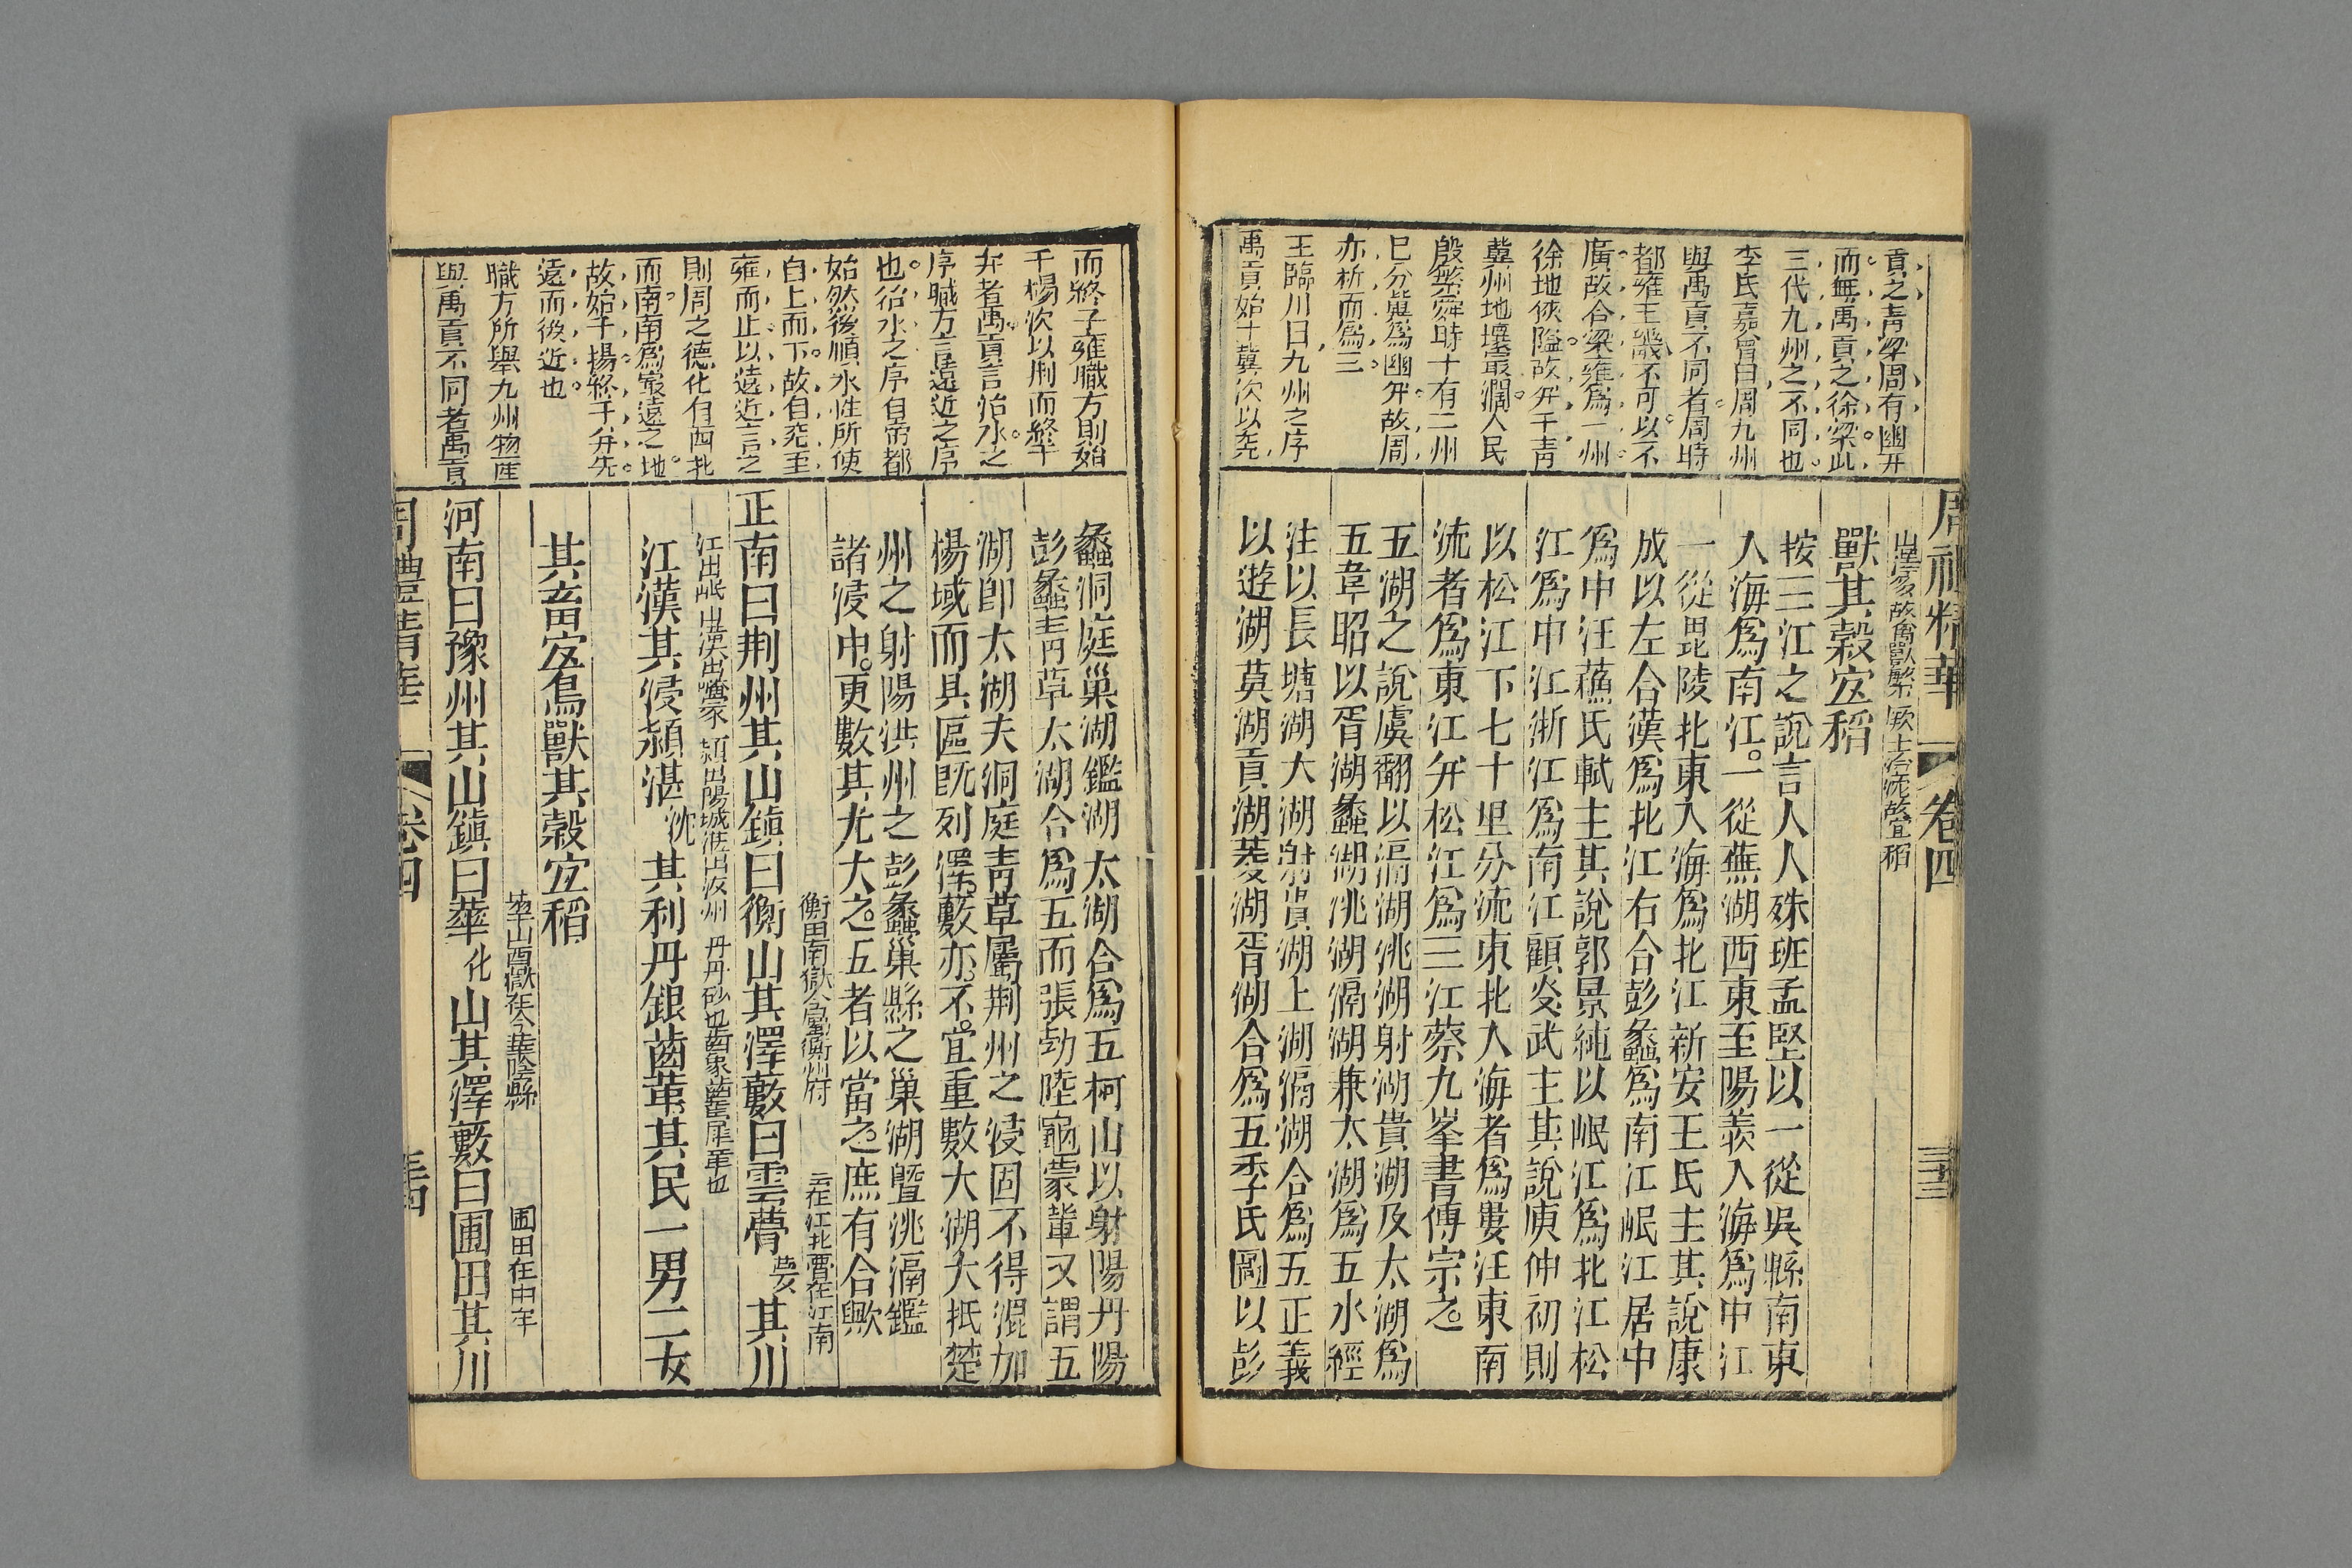 周禮精華
卷四
三十三
貢之靑梁周有幽幷
而無禹貢之徐梁此
三代九州之不同也
李氏嘉會曰周九州
與禹貢不同者周時
都雍王畿不可以不
廣故合梁雍爲一州
徐地狹隘故幷于靑
冀州地壤最濶人民
殷繁舜時十有二州
已分冀爲幽幷故周
亦析而爲三
王臨川曰九州之序
禹貢始于冀次以兖
山澤多故鳥獸繁 厥土治泥故宜稻
獸其穀宐稻
按三江之說言人人殊班孟堅以一從吳縣南東
入海爲南江一從蕪湖西東至陽羨入海爲中江
一從毘陵北東入海爲北江新安王氏主其說康
成以左合漢爲北江右合彭蠡爲南江岷江居中
爲中江蘓氏軾主其說郭景純以岷江爲北江松
江爲中江浙江爲南江顧炎武主其說庾仲初則
以松江下七十里分流東北入海者爲婁江東南
流者爲東江幷松江爲三江蔡九峯書傳宗之
五湖之說虞翻以滆湖洮湖射湖貴湖及太湖爲
五韋昭以胥湖蠡湖洮湖滆湖兼太湖爲五水經
注以長塘湖大湖射貴湖上湖滆湖合爲五正義
以遊湖莫湖貢湖菱湖胥湖合爲五季氏圖以彭
而終于雍職方則始
于楊次以荆而終于
幷者禹貢言治水之
序職方言遠近之序
也治水之序自帝都
始然後順水性所使
自上而下故自兖至
雍而止以遠近言之
則周之德化自西北
而南南爲最遠之地
故始于揚終于幷先
遠而後近也
職方所舉九州物產
與禹貢不同者禹貢
蠡洞庭巢湖鑑湖太湖合爲五柯山以射陽丹陽
彭蠡靑草太湖合爲五而張勃陸龜蒙輩又謂五
湖卽太湖夫洞庭靑草屬荆州之浸固不得混加
楊域而具區旣列澤藪亦不宜重數大湖大抵楚
州之射陽洪州之彭蠡巢縣之巢湖暨洮滆鑑
諸浸中更數其尤大之五者以當之庶有合歟
衡山南嶽今屬衡州府 雲在江北夢在江南
正南曰荆州其山鎭曰衡山其澤藪曰雲瞢夢其川
江出岷山漢出嶓冢 潁出陽城湛出汝州 丹丹砂也齒象齒革犀革也
江漢其浸潁湛沈其利丹銀齒革其民一男二女
其畜宐鳥獸其穀宐稻
華山西嶽在今華陰縣 圃田在中牟
河南曰豫州其山鎭曰華化山其澤藪曰圃田其川
周禮精華
卷四